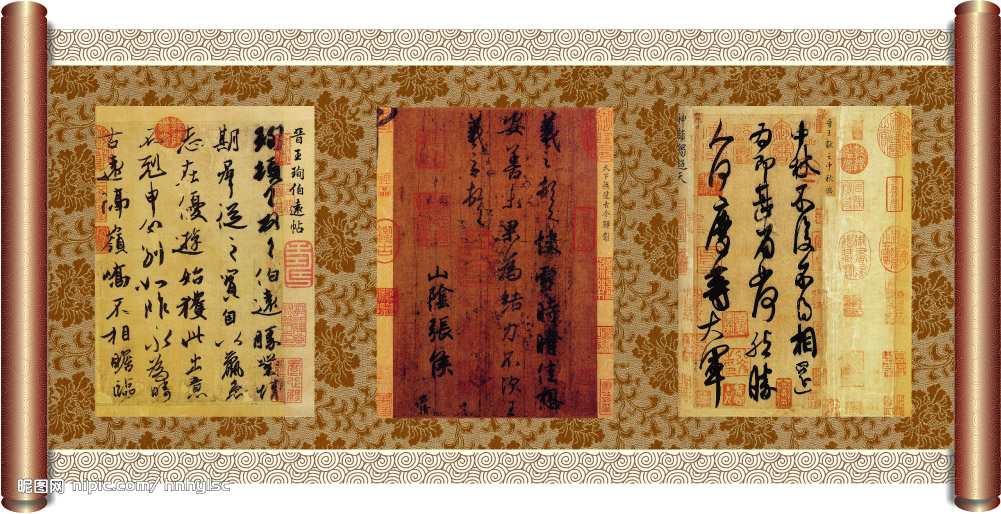 晋王献之中秋帖
中秋不復不得相還
為即甚省如何然勝
人何慶等大軍
神韻獨超天
天下無雙古今鮮對
羲之頓首快雪時晴佳想
安善未果為結力不次王
羲之頓首
山陰張侯
晉王珣伯遠帖
珣頓首頓首伯遠勝業情
期羣從之寶自以羸患
志在優遊始獲此出意
不剋申分別如昨永為疇
古遠隔嶺嶠不相瞻臨
昵图网 nipic.com/ hnhylsc